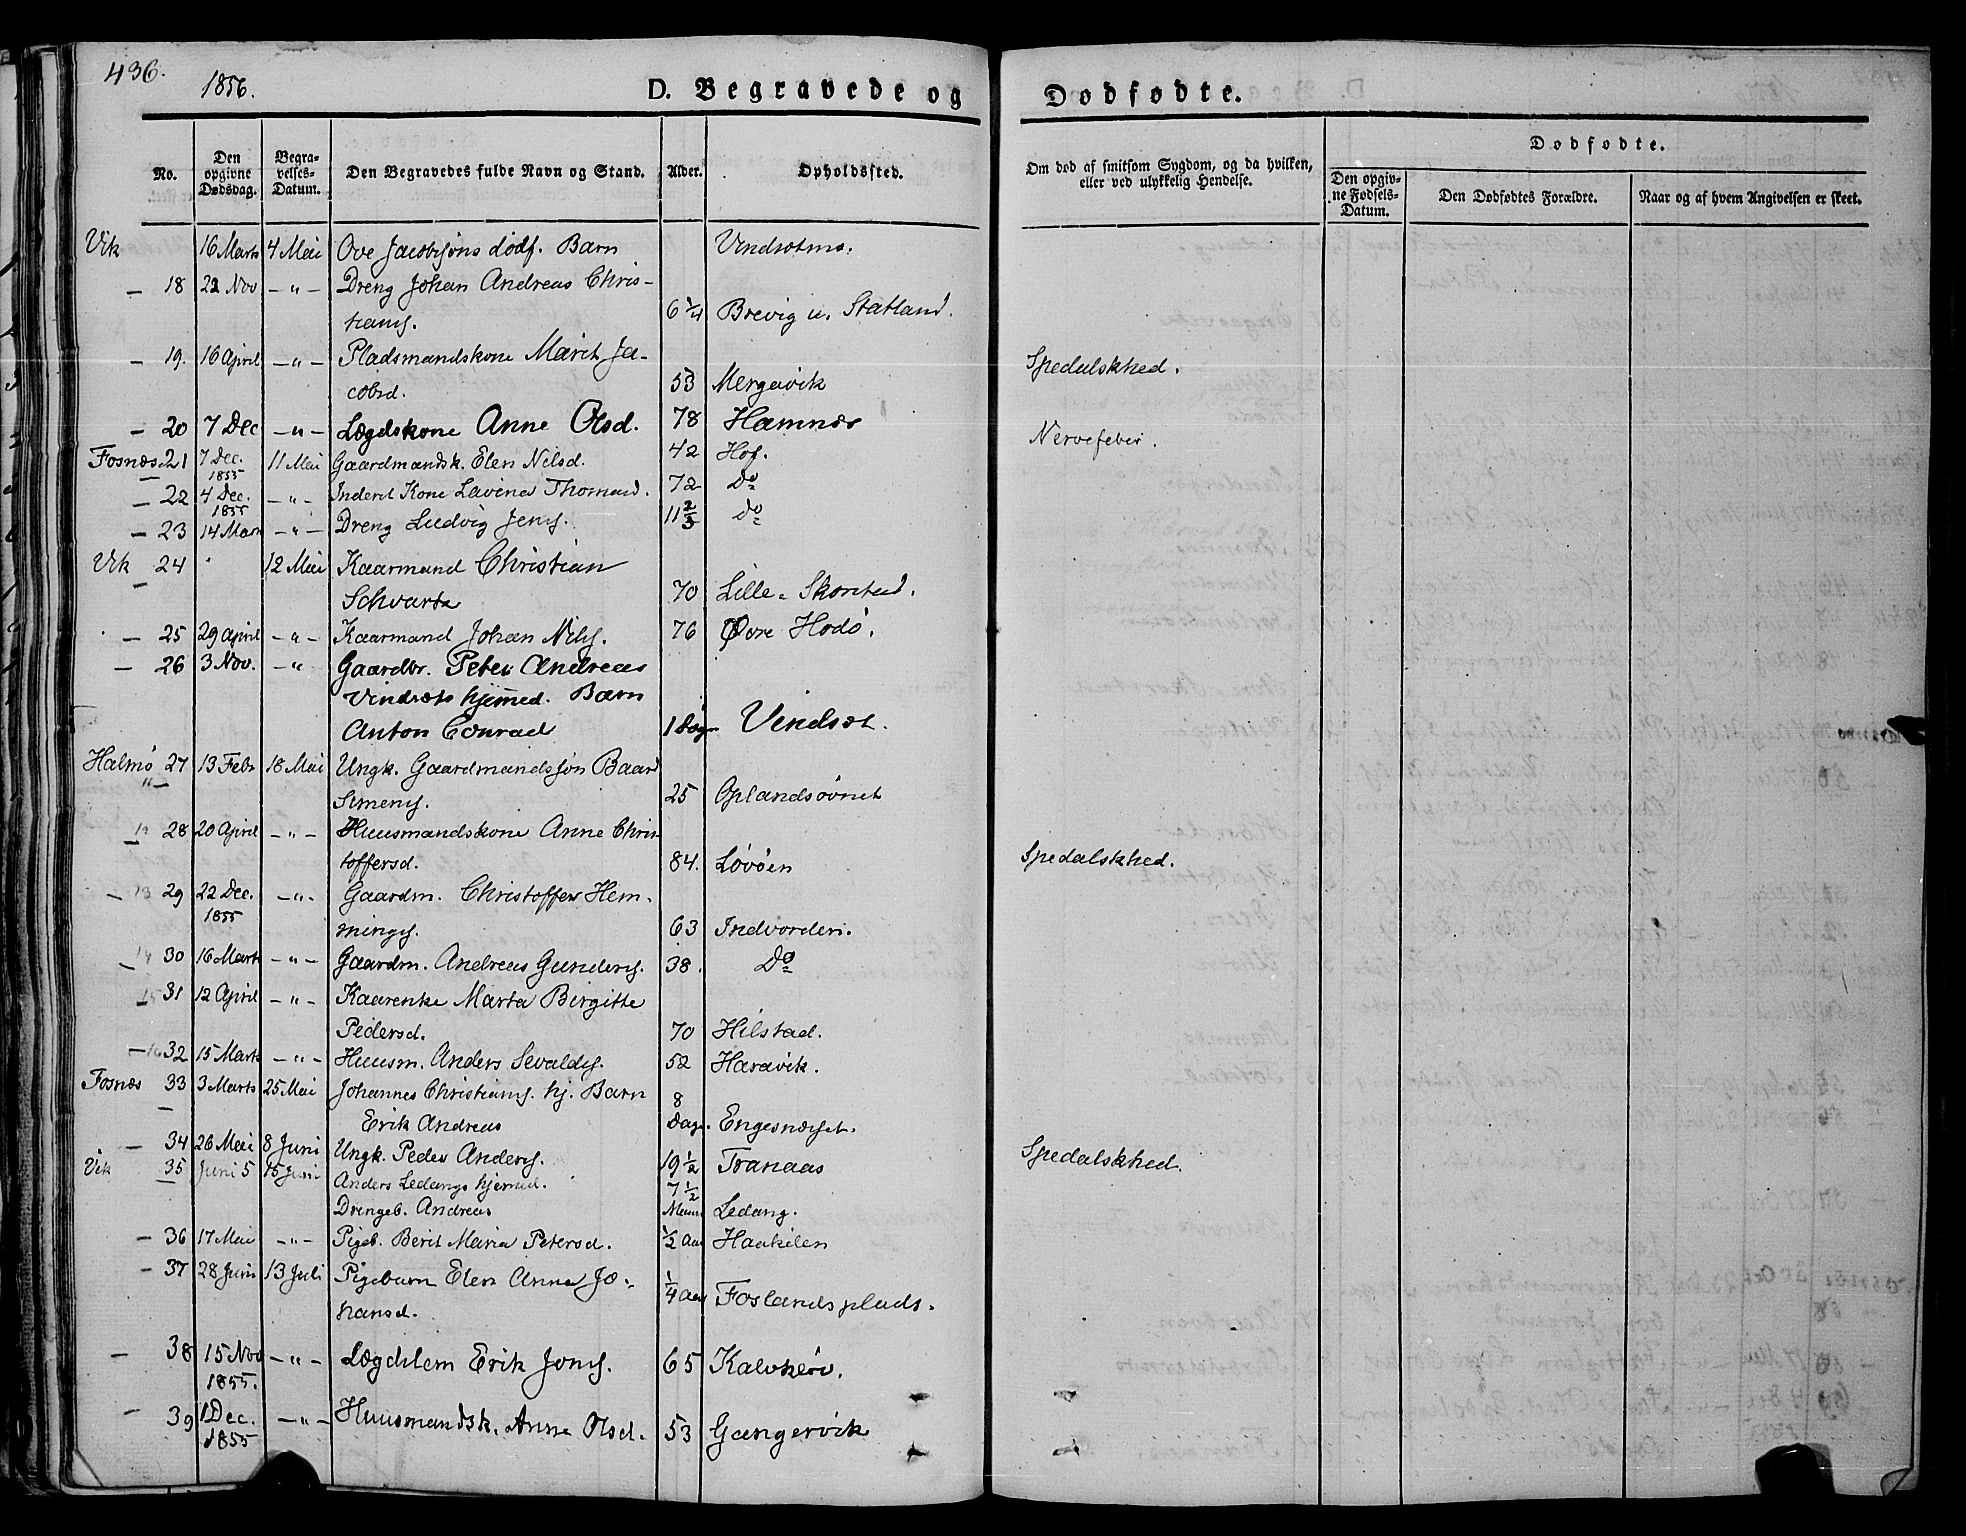 436.
1856.
D. Begravede og Dødfødte.
No.
Den opgivne Dødsdag.
Begravelses-Datum.
Den Begravedes fulde Navn og Stand.
Alder.
Opholdssted.
Om død af smitsom Sygdom, og da hvilken, eller ved ulykkelig Hendelse.
Dødfødte.
Den opgivne Fødsels-Datum.
Den Dødfødtes Forældre.
Naar og af hvem Angivelsen er skeet.
Vik 16 Marts 4 Mai Ove Jacobsøns dødf. Barn
— 18 22 Nov —"— Dreng Johan Andreas Chris-
tians. 6 1/4 Brevig u. Statland.
— 19. 16 April —"— Pladsmandskone Marit Ja-
cobsd. 53 Mergavik Spedalskhed.
— 20 7 Dec —"— Lægdskone Anne Olsd. 78 Hamnes Nervefeber.
Fosnæs 21 7 Dec. 1855 11 Mai Gaardmandsk. Elen Nilsd. 42 Hof.
— 22 4 Dec. 1855 —"— Inderst Kone Lavina Thomasd. 72 Do
— 23 14 Mars —"— Dreng Ludvig Jens. 11 2/3 do
Vik 24 12 Mai Kaarmand Christian
Schvartz 70 Lille-Skorstad.
— 25 29 April —"— Kaarmand Johan Nils. 76 Øvre Hodø.
— 26 3 Nov. —" Gaardbr. Peter Andreas
Vindsets hjemmed. Barn
Anton Conrad 1 Dag Vindset.
Halmø 27 13 Febr 18 Mai Ungk. Gaardmandssøn Baard
Simens. 25 Oplandsøvnet
— 28 20 April —"— Huusmandskone Anne Chris-
toffersd. 84. Løvøen Spedalskhed.
— 29 22 Dec. 1855 —"— Gaardm. Christoffer Hem-
mings. 63 Indvorden.
— 30 16 Marts —"— Gaardm. Andreas Gunders. 38. Do
— 31 12 April —"— Kaarenke Marta Birgitte
Pedersd. 70 Hilstad.
— 32 15 Marts —"— Huusm. Anders Sevalds. 52 Haravik.
Fosnæs 33 3 Marts 25 Mai Johannes Christians. hj. Barn
Erik Andreas 8 Dage. Engesnæsset.
— 34 26 Mai 8 Juni Ungk. Peder Anders. 19 1/2 Tranaas Spedalskhed.
Vik 35 Juni 5 15 Juni Anders Ledangs hjemmed.
Drengeb. Andreas 7 1/2 Maan Ledang.
— 36 17 Mai —"— Pigeb. Berit Maria Petersd. 1/2 Aar Haakilen
— 37 28 Juni 13 Juli Pigebarn Elen Anna Jo-
hansd. 1/4 Aar Foslandsplads.
— 38 15 Nov 1855. —"— Lægdslem Erik Jons. 65 Kalvkøv.
— 39 1 Dec. 1855 —"— Huusmandsk. Anne Olsd. 53 Gangervik